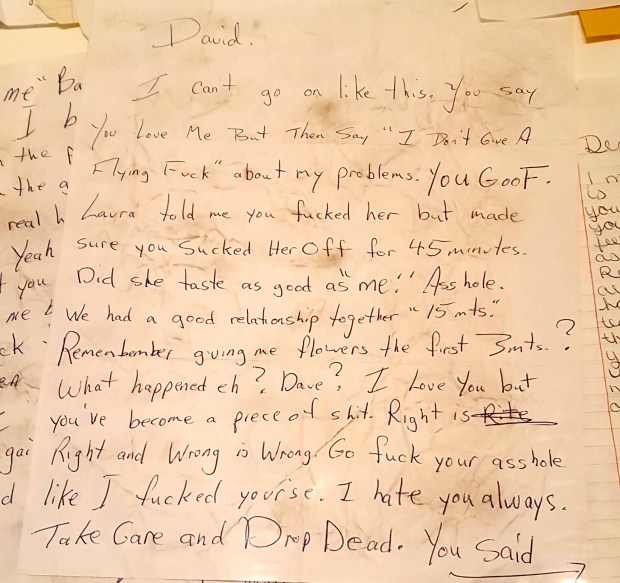 David.
I Can't go on like this. You say
You Love Me But Then Say "I Don't Give A
Flying Fuck" about my problems. You GooF.
Laura told me you fucked her but made
sure you Sucked Her Off for 45 minutes.
Did she taste as good as "me!" Ass hole.
We had a good relationship together "15 mts."
Remenbember giving me flowers the first 3mts.?
What happened eh? Dave? I Love You but
you've become a piece of shit. Right is Rite
Right and Wrong is Wrong. Go fuck your asshole
like I fucked yourse. I hate you always.
Take Care and Drop Dead. You Said
me" Ba
I b
the f
the a
real h
Yeah
you
me
ck
gai
d
De